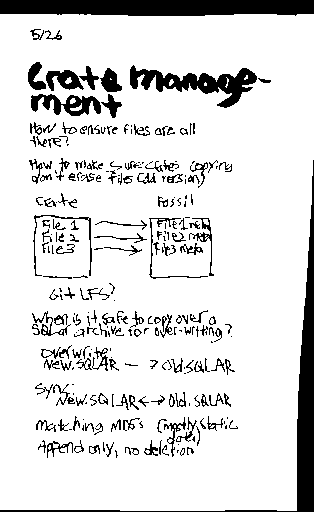 5/26
Crate manage-
ment
How to ensure files are all
there?
How to make sure crates copying
don't erase files (old version)
Crate Fossil
File 1 File1 meta
File 2 File2 meta
File 3 File3 meta
Git LFS?
When is it safe to copy over a
SQLar archive for over-writing?
Overwrite:
New.SQLAR -> Old.SQLAR
Sync:
New.SQLAR <-> Old.SQLAR
Matching MD5s (mostly static
data)
Append only, no deletion